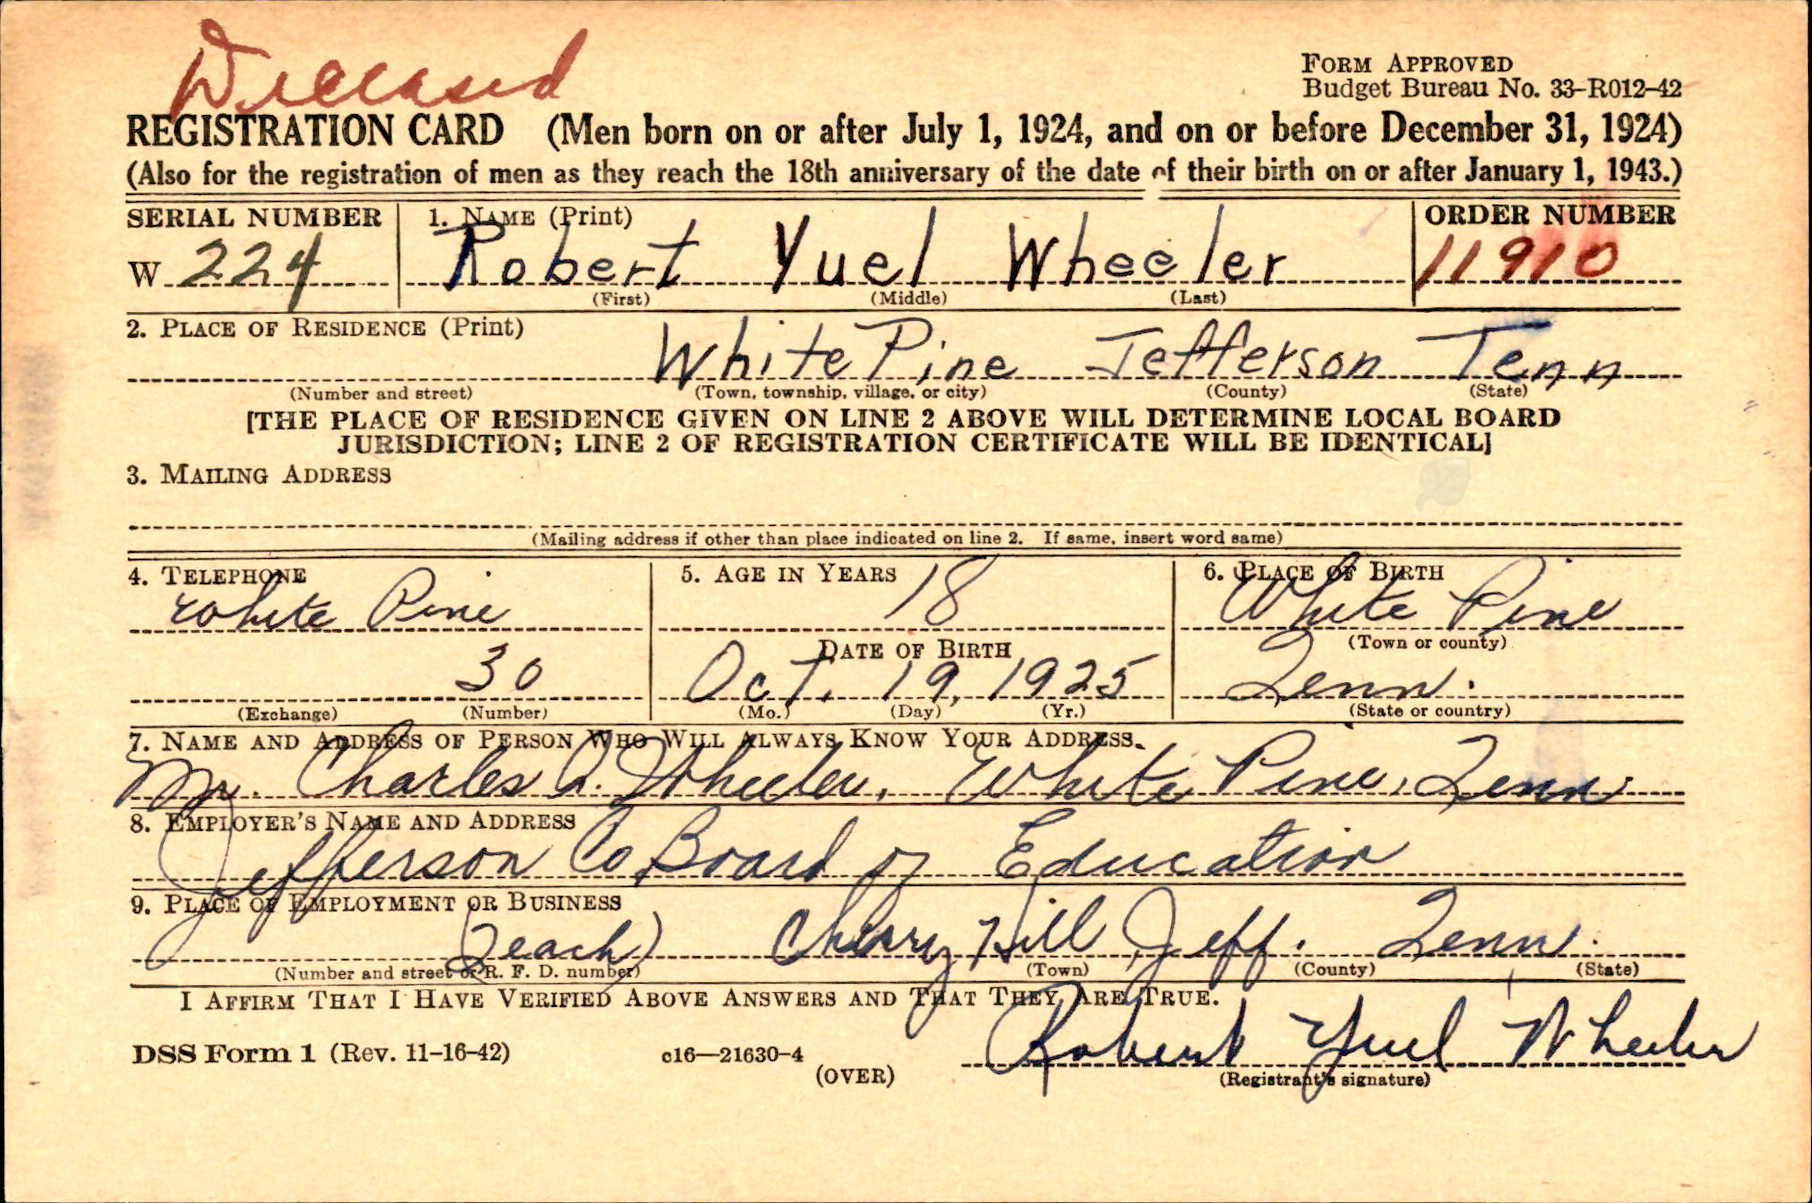 Deceased
FORM APPROVED
Budget Bureau No. 33–R012–42
REGISTRATION CARD (Men born on or after July 1, 1924, and on or before December 31, 1924)
(Also for the registration of men as they reach the 18th anniversary of the date of their birth on or after January 1, 1943.)
SERIAL NUMBER 1. NAME (Print) ORDER NUMBER
W 224 Robert Yuel Wheeler 11910
(First) (Middle) (Last)
2. PLACE OF RESIDENCE (Print)
White Pine Jefferson Tenn
(Number and street) (Town, township, village, or city) (County) (State)
[THE PLACE OF RESIDENCE GIVEN ON LINE 2 ABOVE WILL DETERMINE LOCAL BOARD
JURISDICTION; LINE 2 OF REGISTRATION CERTIFICATE WILL BE IDENTICAL]
3. MAILING ADDRESS
(Mailing address if other than place indicated on line 2. If same, insert word same)
4. TELEPHONE 5. AGE IN YEARS 6. PLACE OF BIRTH
White Pine 18 White Pine
DATE OF BIRTH (Town or county)
30 Oct. 19, 1925 Tenn.
(Exchange) (Number) (Mo.) (Day) (Yr.) (State or country)
7. NAME AND ADDRESS OF PERSON WHO WILL ALWAYS KNOW YOUR ADDRESS.
Mr. Charles A. Wheeler, White Pine, Tenn.
8. EMPLOYER'S NAME AND ADDRESS
Jefferson Co Board of Education
9. PLACE OF EMPLOYMENT OR BUSINESS
(Teach) Cherry Hill, Jeff. Tenn.
(Number and street or R. F. D. number) (Town) (County) (State)
I AFFIRM THAT I HAVE VERIFIED ABOVE ANSWERS AND THAT THEY ARE TRUE.
DSS Form 1 (Rev. 11-16-42) c16—21630-4 Robert Yuel Wheeler
(OVER) (Registrant's signature)